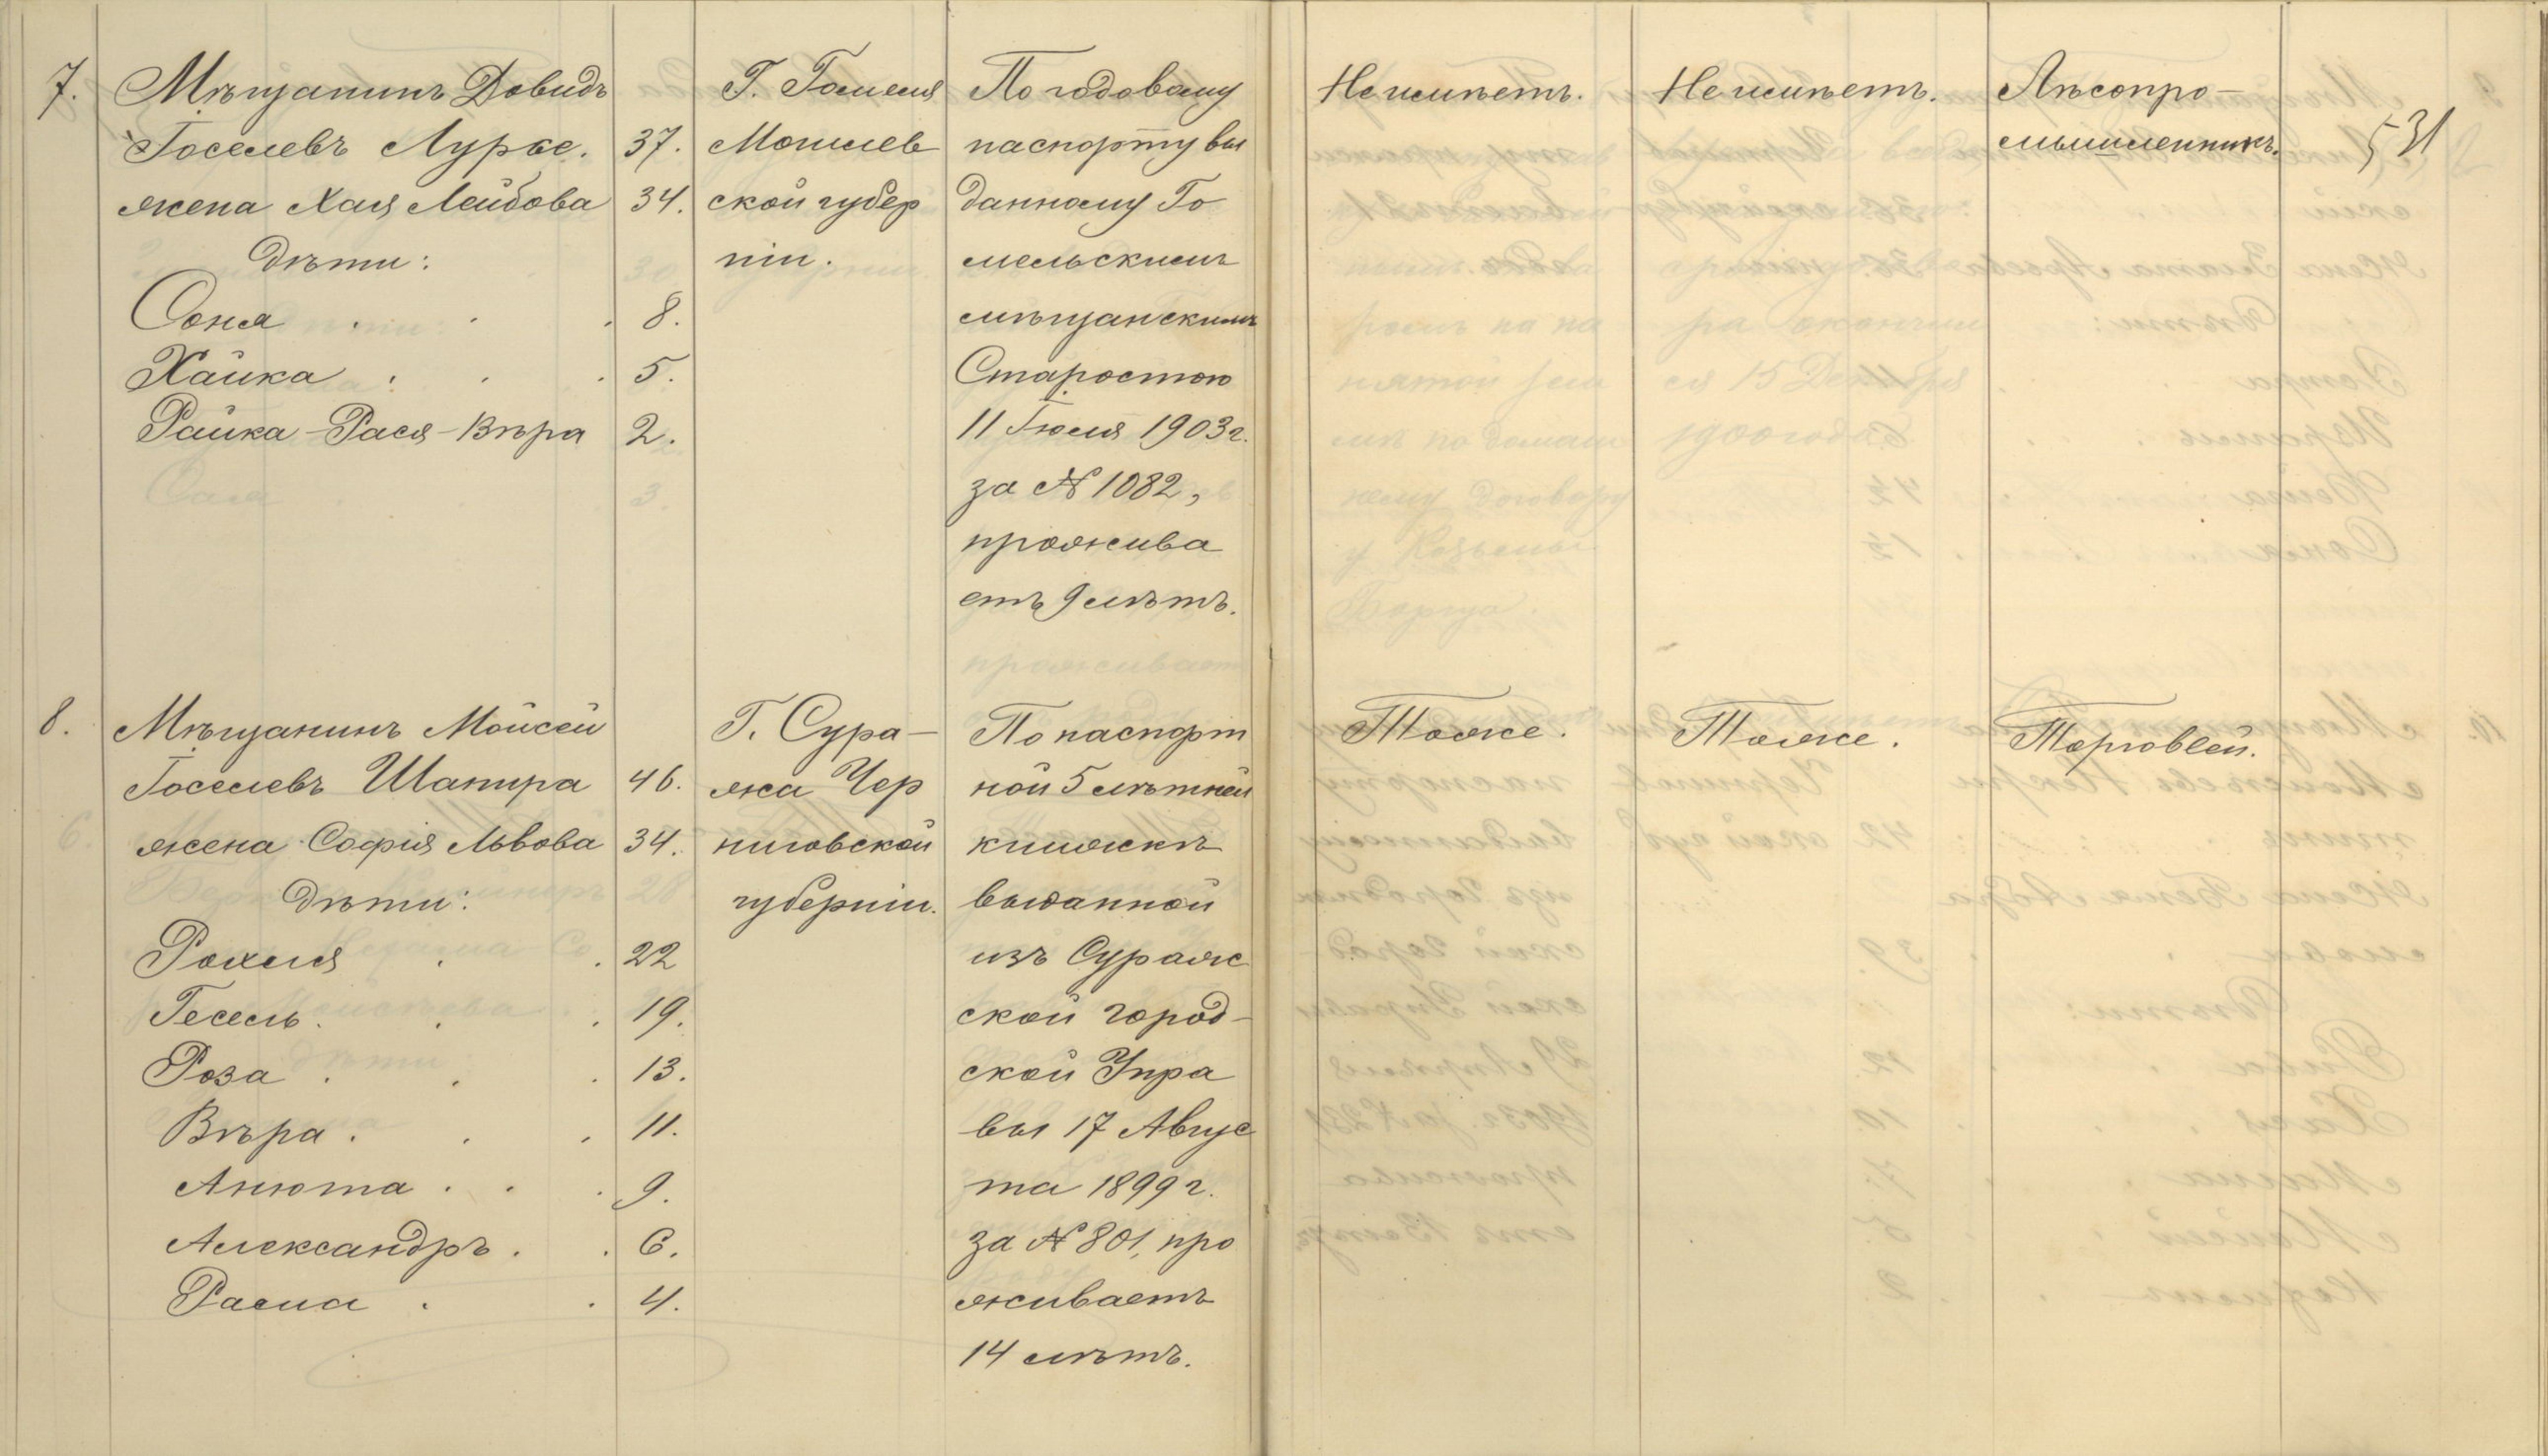 7.
Мѣщанинъ Довидъ
Іоселевъ Лурье. 37.
жена Хая Лейбова 34.
дѣти:
Соня . . . 8.
Хайка . . . 5.
Райка-Рася-Вѣра 2.
Г. Гомеля
Могилев
ской губер
ніи.
По годовому
паспорту вы
данному Го
мельскимъ
мѣщанскимъ
Старостою
11 Іюля 1903 г.
за № 1082,
прожива
етъ 9 лѣтъ.
Не имѣетъ.
Не имѣетъ.
Лѣсопро-
мышленникъ.
531
8.
Мѣщанинъ Мойсей
Іоселевъ Шапира 46.
жена Софія Львова 34.
дѣти:
Рохля . . 22
Гесель . . . 19.
Роза . . . 13.
Вѣра . . . 11.
Анюта . . . 9.
Александръ . . 6.
Г. Сура-
жа Чер
ниговской
губерніи.
По паспорт
ной 5 лѣтней
книжкѣ
выданной
изъ Сураж
ской город-
ской Упра
вы 17 Авгус
та 1899 г.
за № 801, про
живаетъ
14 лѣтъ.
4.
Тоже.
Тоже.
Торговлей.